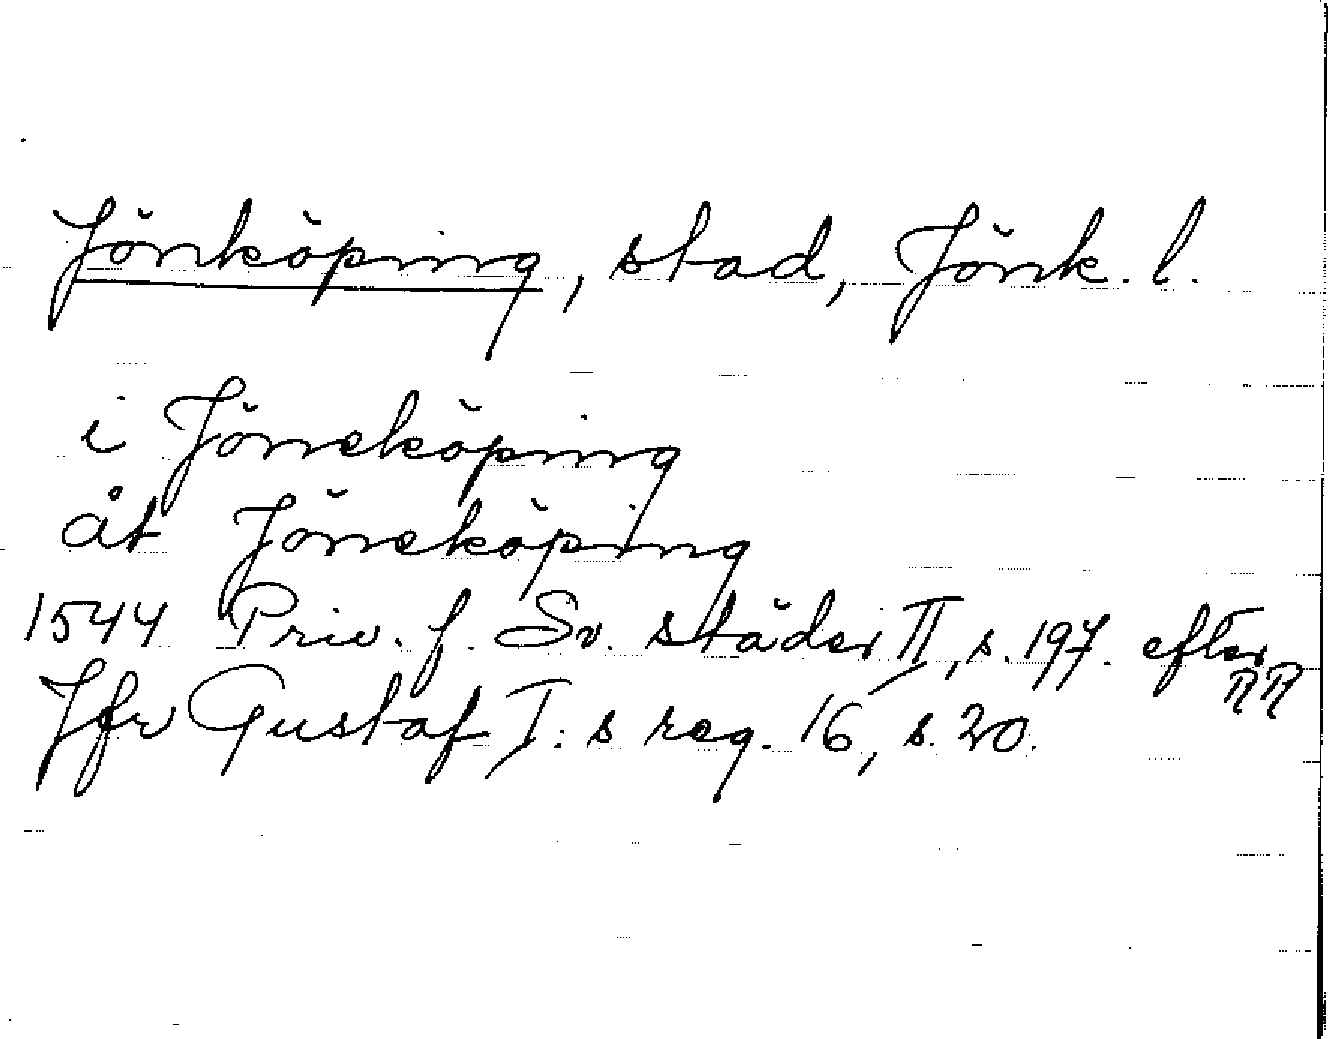 Jönköping, stad, Jönk. l.
i Jöneköping
åt Jöneköping
1544 Priv. f. Sv. städer II, s. 197. efter RR
Jfr Gustaf I:s reg. 16, s. 20.